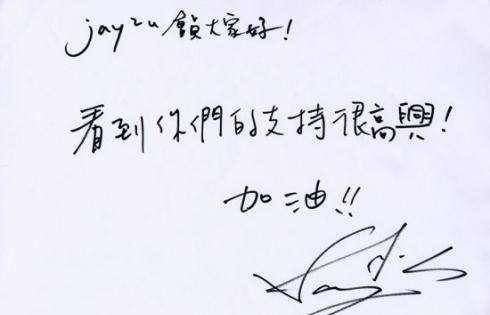 jay2u 的大家好!
看到你們的支持很高興!
加油!!